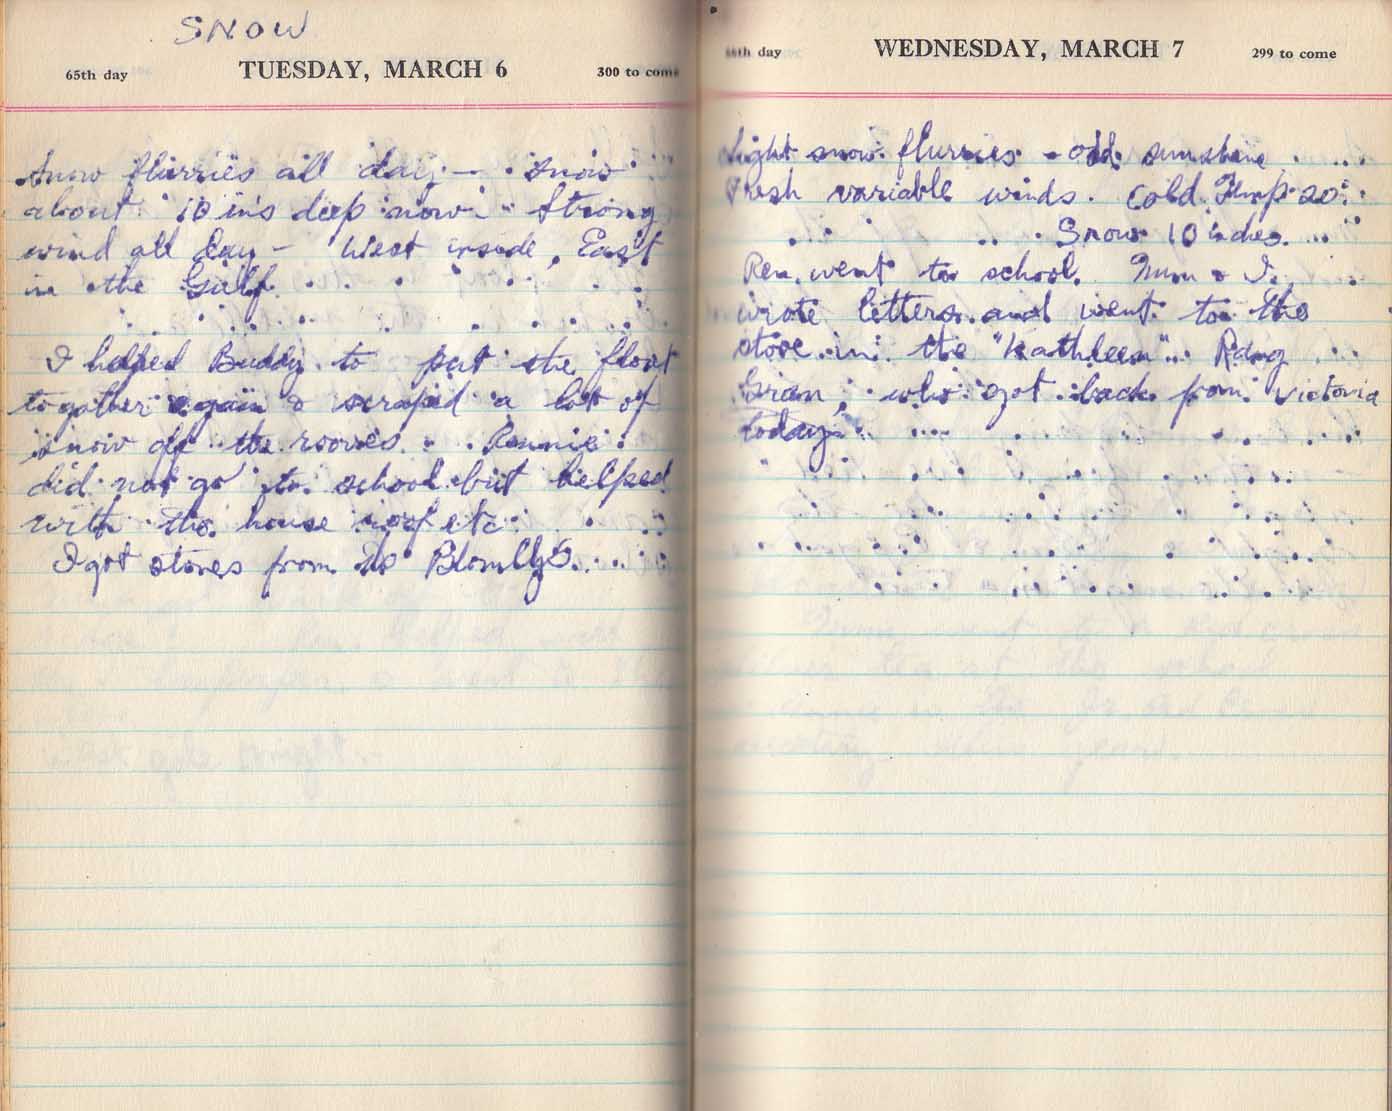 SNOW
65th day TUESDAY, MARCH 6 300 to come
Snow flurries all day — snow
about 10 ins deep now. Strong
wind all day — West inside, East
in the Gulf.
I helped Buddy to put the float
together again & scraped a lot of
snow off the rooves. Rennie
did not go to school but helped
with the house roof etc.
I got stores from Blomly's.
66th day WEDNESDAY, MARCH 7 299 to come
Light snow flurries - odd sunshine
Fresh variable winds. Cold. Temp 20.
Snow 10 inches.
Ren. went to school. Mum & I
wrote letters and went to the
store in the "Kathleen".
Brian, who got back from Victoria
today.